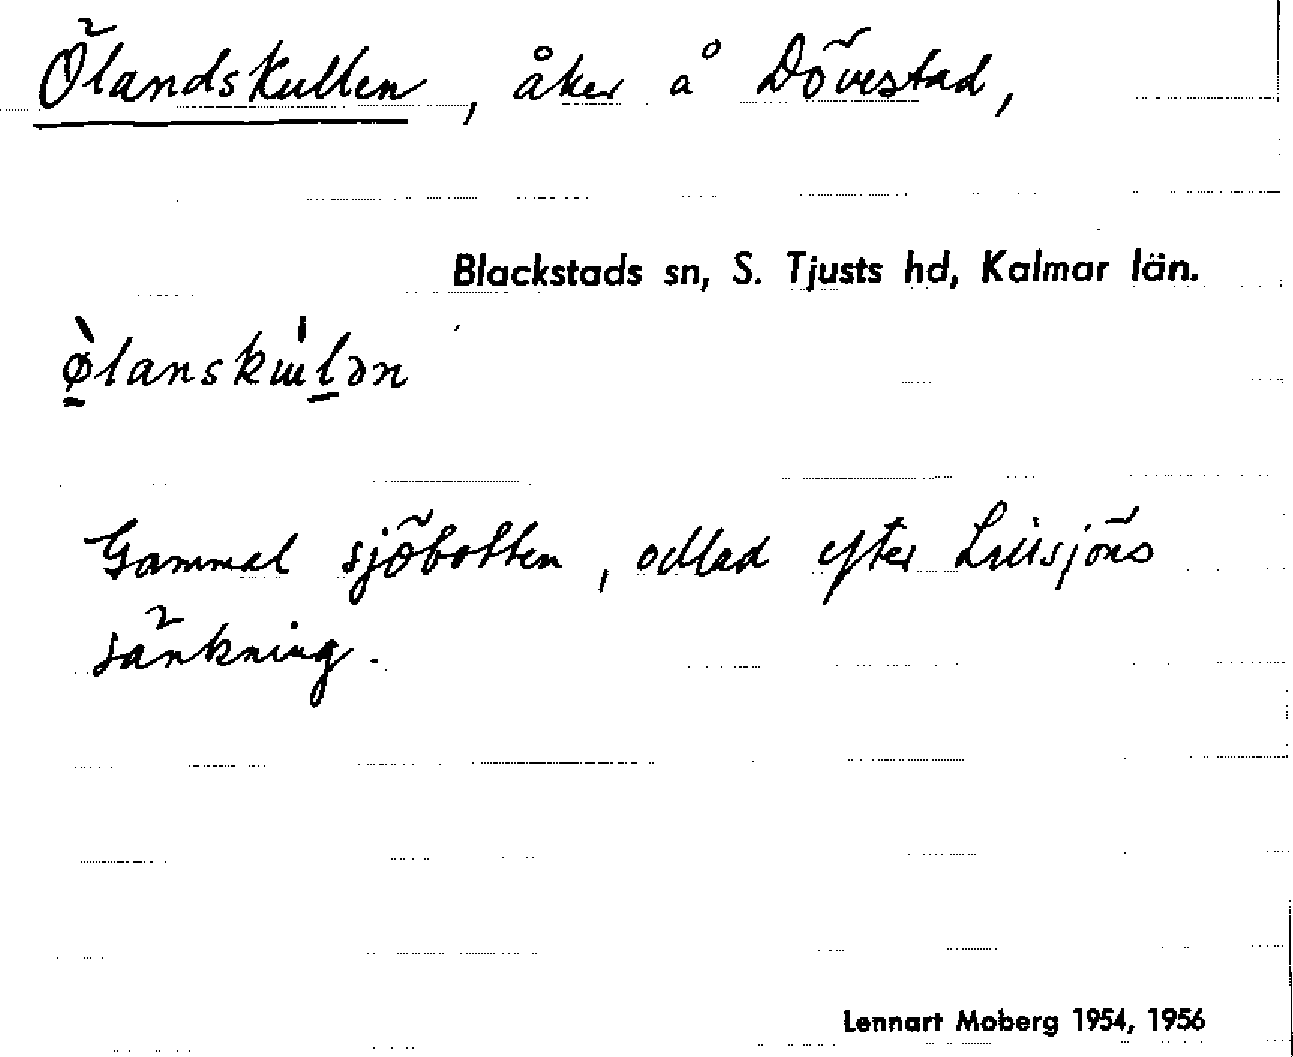 Ölandskullen, åker å Dövestad,
Blackstads sn, S. Tjusts hd, Kalmar län.
Gammal sjöbotten, odlad efter
sänkning.
Lennart Moberg 1954, 1956